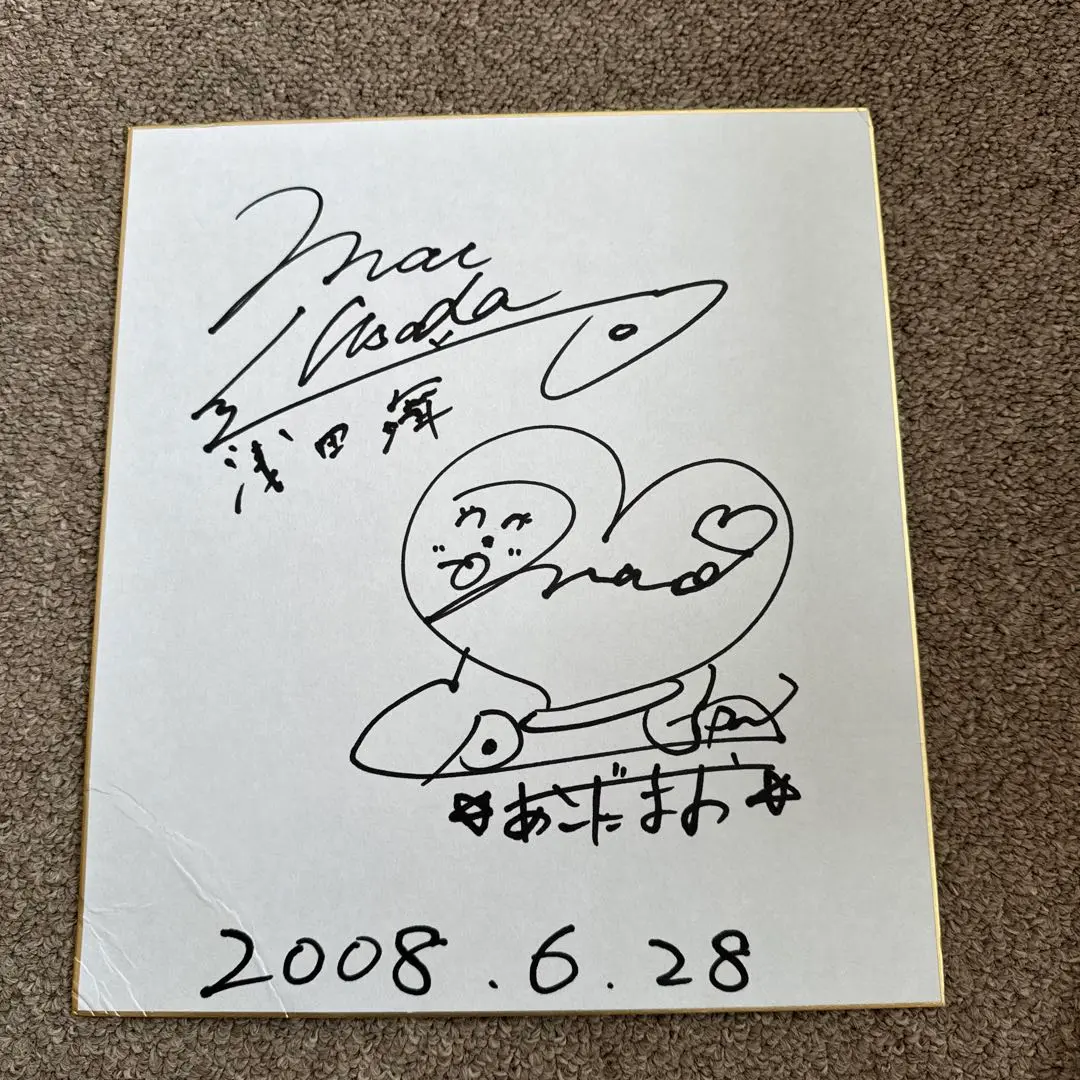 mai
Asada
浅田舞
mao
あさだまお
2008.6.28